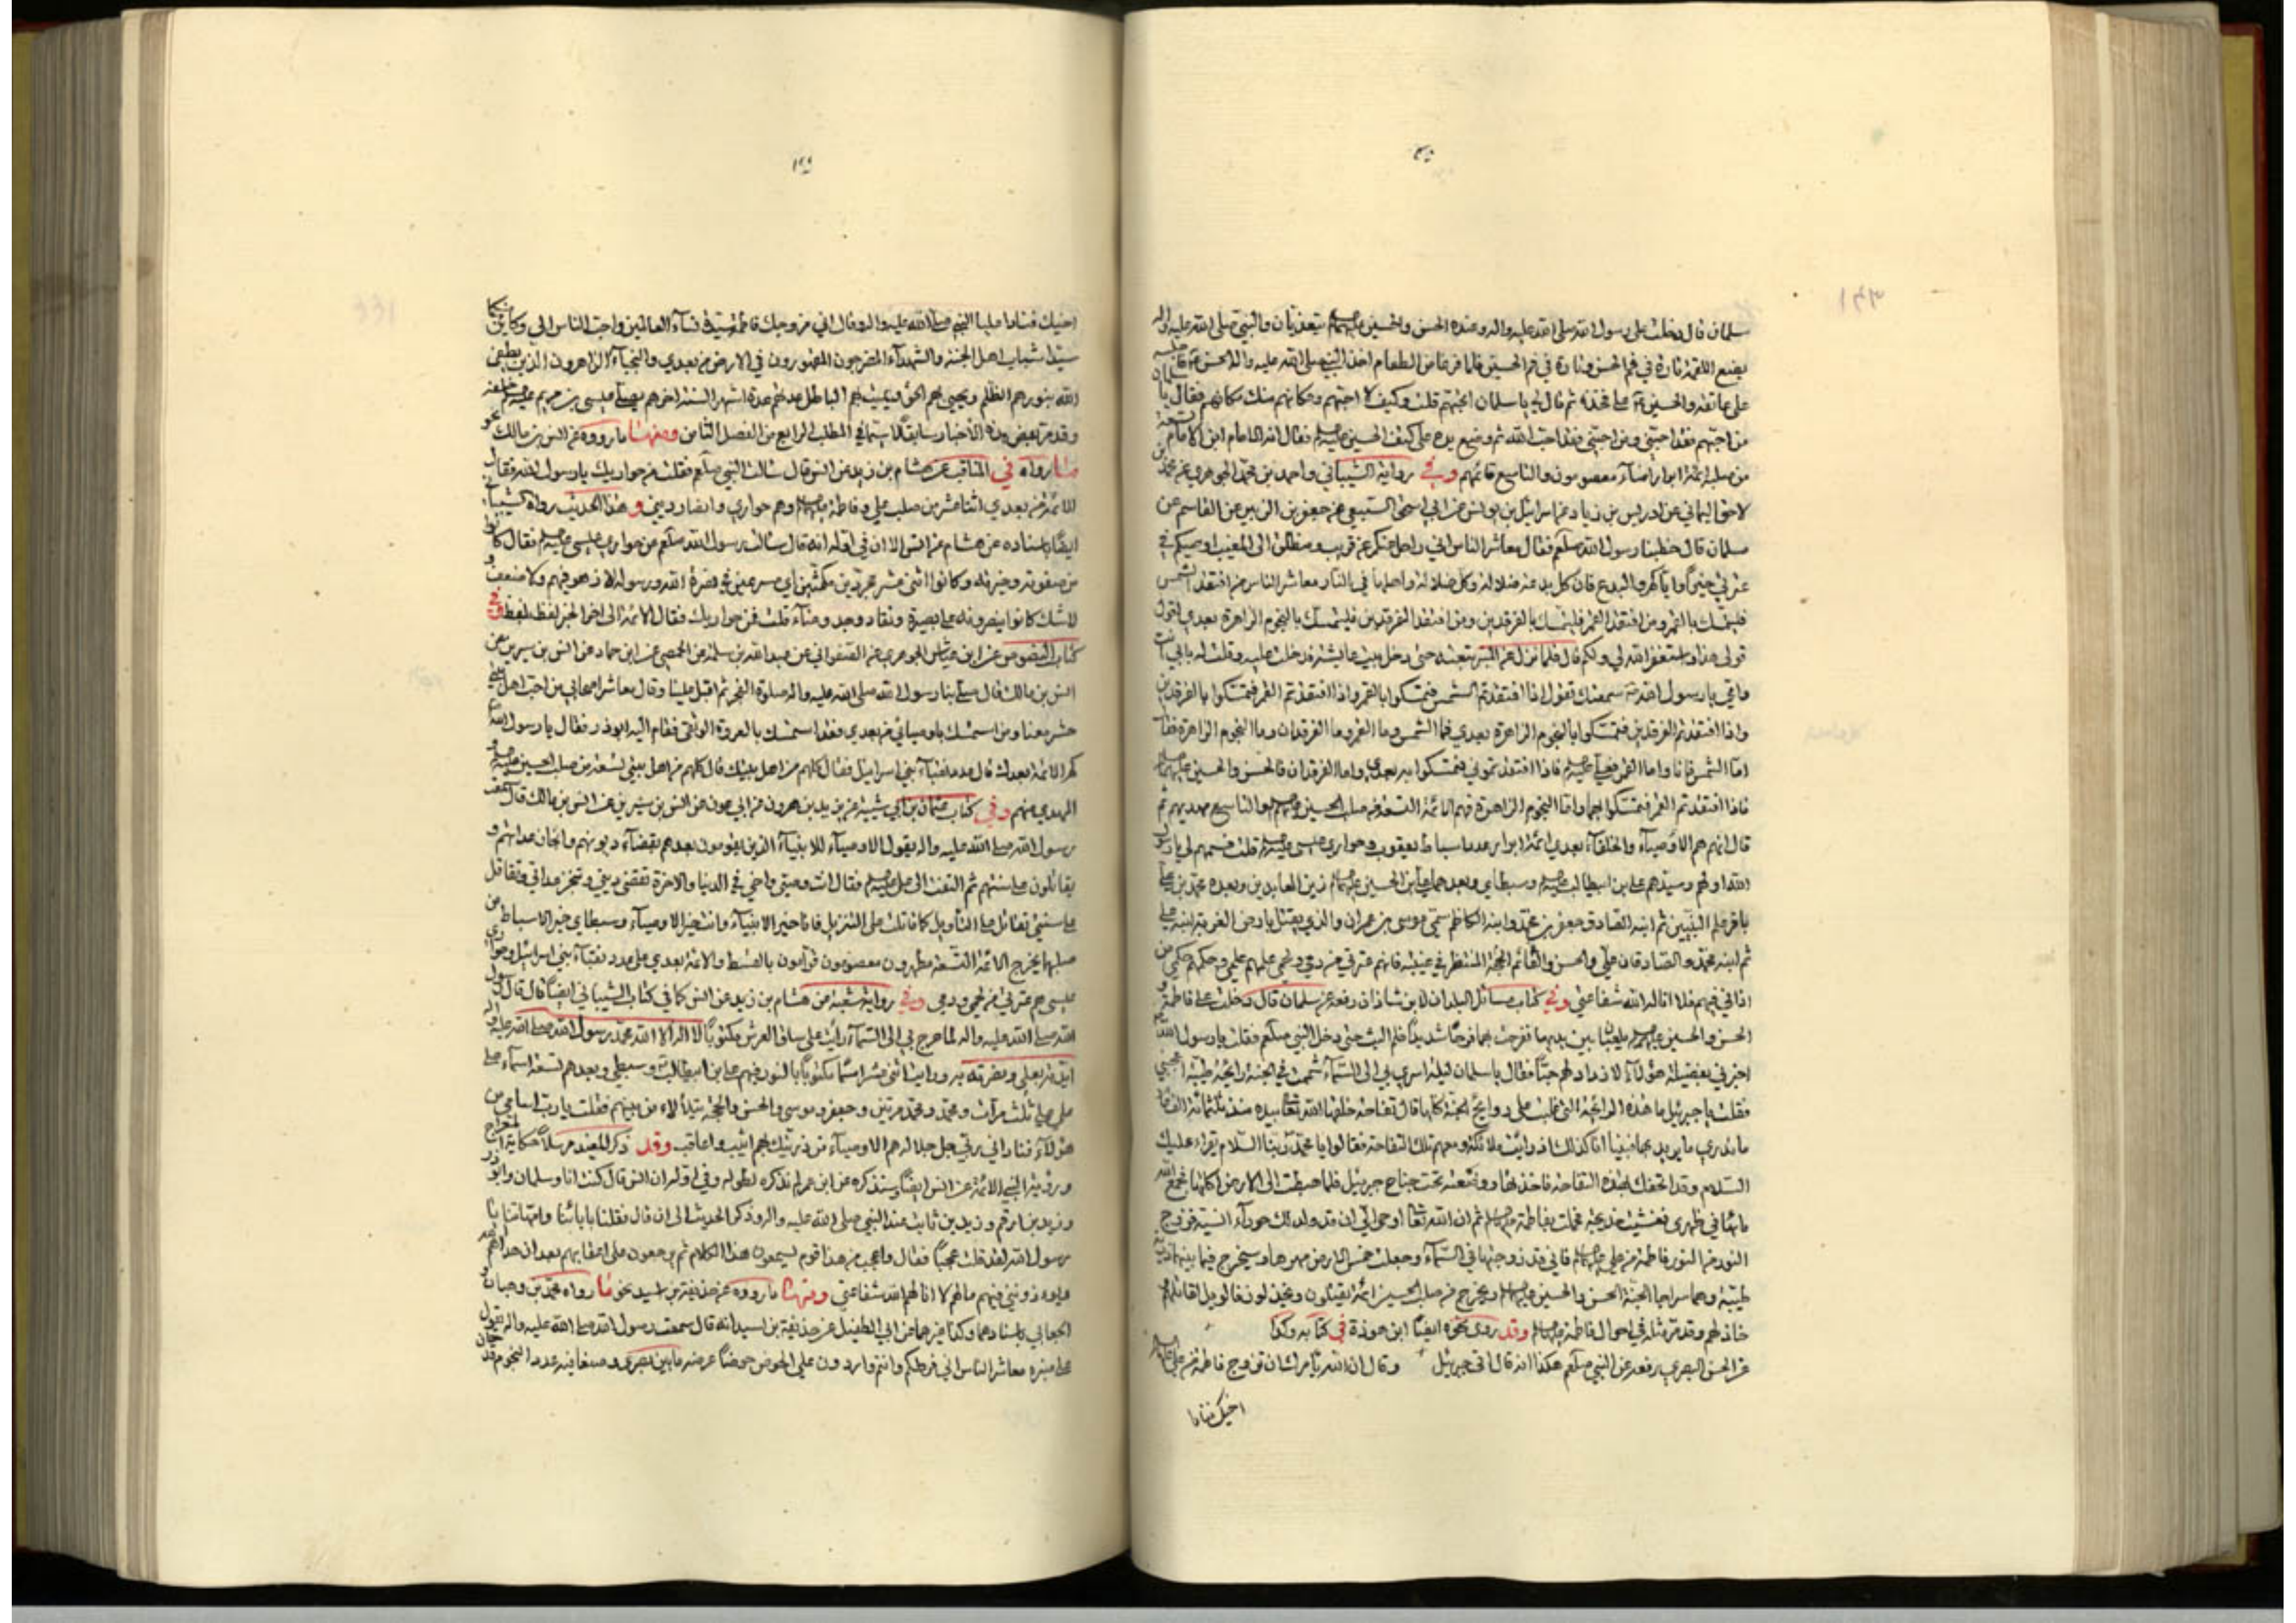 سلمان قال دخلت على رسول الله صلى الله عليه واله وعنده الحسن والحسين يتغذيان والنبي صلى الله عليه واله
يضع اللقمة تارة في فم الحسن وتارة في فم الحسين فلما فرغا من الطعام اخذ النبي صلى الله عليه واله الحسن
على عاتقه والحسين على فخذه ثم قال لي يا سلمان اتحبهم قلت وكيف لا احبهم ومكانهم منك مكانهم فقال يا سلمان
من احبهم فقد احبني ومن احبني فقد احب الله ثم وضع يده على كتف الحسين فقال انه الامام ابن الامام تسعة
من صلبه ائمة ابرار امناء معصومون والتاسع قائمهم وفي رواية الشيباني واحمد بن محمد الجوهري عن محمد بن
لاحق اليماني عن ادريس بن زياد عن اسرائيل بن يونس عن ابي اسحق السبيعي عن جعفر بن الزبير عن القاسم عن
سلمان قال خطبنا رسول الله صلعم فقال معاشر الناس اني راحل عنكم عن قريب ومنطلق الى المغيب اوصيكم في
عترتي خيرا واياكم والبدع فان كل بدعة ضلالة وكل ضلالة واهلها في النار معاشر الناس من افتقد الشمس
فليتمسك بالقمر ومن افتقد القمر فليتمسك بالفرقدين ومن افتقد الفرقدين فليتمسك بالنجوم الزاهرة بعدي اقول
قولي هذا واستغفر الله لي ولكم قال فلما نزل عن المنبر تبعته حتى دخل بيت عايشة فدخلت عليه وقلت له بابي انت
وامي يا رسول الله سمعتك تقول اذا افتقدتم الشمس فتمسكوا بالقمر واذا افتقدتم القمر فتمسكوا بالفرقدين
واذا افتقدتم الفرقدين فتمسكوا بالنجوم الزاهرة بعدي فما الشمس وما القمر وما الفرقدان وما النجوم الزاهرة فقال
اما الشمس فانا واما القمر فعلي فاذا افتقدتموني فتمسكوا به بعدي واما الفرقدان فالحسن والحسين
فاذا افتقدتم القمر فتمسكوا بهما واما النجوم الزاهرة فهم الائمة التسعة من صلب الحسين والتاسع مهديهم ثم
قال انهم هم الاوصياء والخلفاء بعدي ائمة ابرار عدد اسباط يعقوب وحواري عيسى قلت فسمهم لي يا رسول
الله اولهم وسيدهم علي بن ابيطالب وسبطاي وبعدهما علي بن الحسين زين العابدين وبعده محمد بن علي
باقر علم النبيين ثم ابنه الصادق جعفر بن محمد وابنه الكاظم سمي موسى بن عمران والذي يقتل بارض الغربة ابنه علي
ثم ابنه محمد والصادقان علي والحسن والقائم الحجة المنتظر في غيبته فانهم عترتي من دمي ولحمي علمهم علمي وحكمهم حكمي من
اذاني فيهم فلا اناله الله شفاعتي وفي كتاب مسائل البلدان لابن شاذان رفعه عن سلمان قال دخلت على فاطمة و
الحسن والحسين يلعبان بين يديها ففرحت بهما فرحا شديدا فلم البث حتى دخل النبي صلعم فقلت يا رسول الله
اخبرني بفضيلة هؤلاء لازداد لهم حبا فقال يا سلمان ليلة اسري بي الى السماء شممت في الجنة رائحة طيبة اعجبتني
فقلت يا جبرئيل ما هذه الرائحة التي غلبت على روايح الجنة كلها قال تفاحة خلقها الله تعالى بيده منذ ثلثمائة الف عام
ما ندري ما يريد بها فبينا انا كذلك اذ رايت ملائكة ومعهم تلك التفاحة فقالوا يا محمد ربنا السلام يقراء عليك
السلام وقد اتحفك بهذه التفاحة فاخذتها ووضعتها تحت جناح جبرئيل فلما هبطت الى الارض اكلتها فجمع الله
ماءها في ظهري فغشيت خديجة فحملت بفاطمة ثم ان الله تعالى اوحى الي ان قد ولد لك حوراء انسية فزوج
النور من النور فاطمة من علي فاني قد زوجتها في السماء وجعلت خمس الارض مهرها وسيخرج فيما بينهما ذرية
طيبة وهما سراجا الجنة الحسن والحسين ويخرج من صلب الحسين ائمة يقتلون ويخذلون فالويل لقاتلهم و
خاذلهم وقد مر مثله في احوال فاطمة وقد روى نحوه ايضا ابن حوذة في كتابه وكذا
عن الحسن البصري رفعه عن النبي صلعم هكذا انه قال اتى جبرئيل وقال ان الله يامرك ان تزوج فاطمة من علي
اخيك فناداه
اخيك فناداه عليا النبي صلى الله عليه واله وقال اني مزوجك فاطمة سيدة نساء العالمين واحب الناس الي وكائن منكما
سيدا شباب اهل الجنة والشهداء المضرجون المقهورون في الارض من بعدي والنجباء الزاهرون الذين يطفئ
الله بنورهم الظلم ويحيي بهم الحق ويميت بهم الباطل عدتهم عدة اشهر السنة اخرهم يصلي عيسى بن مريم خلفه
وقد مر بعض هذه الاخبار سابقا لا سيما في المطلب الرابع من الفصل الثامن ومنها ما رووه عن انس بن مالك نحو
ما رواه في المناقب عن هشام بن زيد عن انس قال سالت النبي صلعم فقلت من حواريك يا رسول الله فقال
الائمة من بعدي اثنا عشر من صلب علي وفاطمة وهم حواري وانصار ديني وهذا الحديث رواه الشيباني
ايضا باسناده عن هشام عن انس الا ان في اوله انه قال سالت رسول الله صلعم عن حواري عيسى فقال كانوا
من صفوته وخيرته وكانوا اثنى عشر مجردين مكمشين اي مسرعين في نصرة الله ورسوله لا زهو فيهم ولا ضعف و
لا شك كانوا ينصرونه على بصيرة ونفاد وجد وعناء قلت فمن حواريك فقال الائمة الى اخر الخبر لفظ بلفظ وفي
كتاب النصوص عن ابن عياش الجوهري عن الصفواني عن عبد الله بن سلمة عن الحمصي عن ابن حماد عن انس بن سيرين عن
انس بن مالك قال صلى بنا رسول الله صلى الله عليه واله صلوة الفجر ثم اقبل علينا وقال معاشر اصحابي من احب اهل بيتي
حشر معنا ومن استمسك باوصيائي من بعدي فقد استمسك بالعروة الوثقى فقام اليه ابوذر فقال يا رسول الله
كم الائمة بعدك قال عدد نقباء بني اسرائيل فقال كلهم من اهل بيتك قال كلهم من اهل بيتي تسعة من صلب الحسين و
المهدي منهم وفي كتاب عثمان بن ابي شيبة عن يزيد بن هرون عن ابي عون عن انس بن سيرين عن انس بن مالك قال سمعت
رسول الله صلى الله عليه واله يقول الاوصياء للانبياء الذين يقومون بعدهم بقضاء ديونهم وانجاز عداتهم و
يقاتلون على سنتهم ثم التفت الى علي فقال انت وصيي واخي في الدنيا والاخرة تقضي ديني وتنجز عداتي وتقاتل
على سنتي تقاتل على التأويل كما قاتلت على التنزيل فانا خير الانبياء وانت خير الاوصياء وسبطاي خير الاسباط من
صلبهما يخرج الائمة التسعة مطهرون معصومون قوامون بالقسط والائمة بعدي على عدد نقباء بني اسرائيل وحواري
عيسى هم عترتي من لحمي ودمي وفي رواية شعبة عن هشام بن زيد عن انس كما في كتاب الشيباني ايضا قال قال رسول
الله صلى الله عليه واله لما عرج بي الى السماء رايت على ساق العرش مكتوبا لا اله الا الله محمد رسول الله صلى الله عليه واله
ايدته بعلي ونصرته به ورايت اثني عشر اسما مكتوبا بالنور فيهم علي بن ابيطالب وسبطي وبعدهم تسعة اسماء علي
علي علي ثلث مرات ومحمد ومحمد مرتين وجعفر وموسى والحسن والحجة يتلألأ من بينهم فقلت يا رب اسامي من
هؤلاء فناداني ربي جل جلاله هم الاوصياء من ذريتك بهم اثيب واعاقب وقد ذكر المفيد مرسلا حكاية المعراج
ورؤية النبي الائمة عن انس ايضا وسنذكره عن ابن عمر لم نذكره لطوله وفي اوله ان انس قال كنت انا وسلمان وابوذر
وزيد بن ارقم وزيد بن ثابت عند النبي صلى الله عليه واله وذكر الحديث الى ان قال فقلنا بابائنا وامهاتنا يا
رسول الله لقد قلت عجبا فقال واعجب من هذا قوم يسمعون هذا الكلام ثم يرجعون على اعقابهم بعد ان هداهم الله
ويؤذونني فيهم ما لهم لا انالهم الله شفاعتي ومنها ما رووه عن حذيفة بن اسيد نحو ما رواه محمد بن وهبان و
الجعابي باسنادهما وكذا غيرهما عن ابي الطفيل عن حذيفة بن اسيد انه قال سمعت رسول الله صلى الله عليه واله يقول
على منبره معاشر الناس اني فرطكم وانتم واردون على الحوض حوضا عرضه ما بين بصرى وصنعا فيه عدد النجوم قدحان